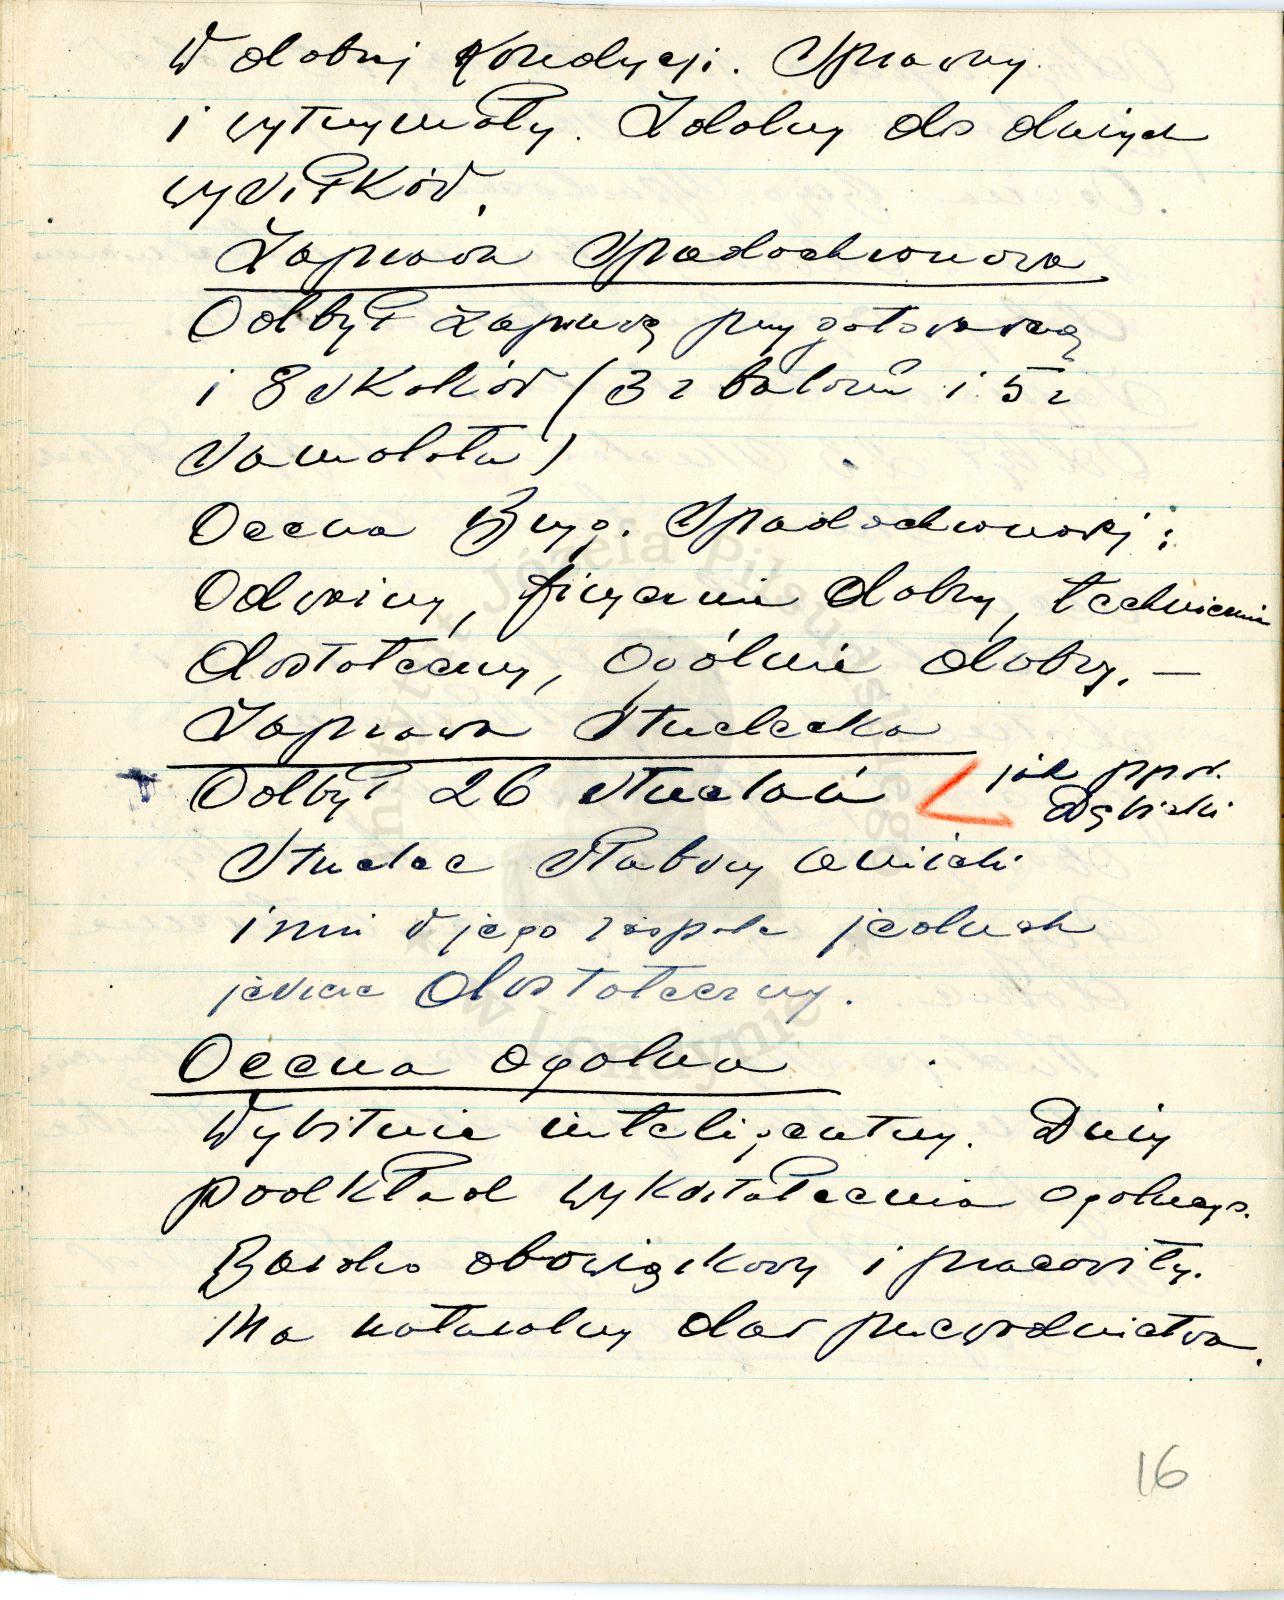 W dobrej kondycji. Sprawny
i wytrzymały. Zdolny do dużych
wysiłków.
Zaprawa Spadochronowa
Odbył zaprawę przygotowawczą
i 8 skoków (3 z balonu i 5 z
samolotu)
Ocena Bryg. Spadochronowej:
Odważny, fizycznie dobry, technicznie
dostateczny, ogólnie dobry. —
Zaprawa Strzelecka
Odbył 26 strzelań
jak ppor.
Dębicki
Strzelec słabszy
inni w jego zespole jednak
jeszcze dostateczny.
Ocena ogolna
Wybitnie inteligentny. Duży
podkład wykształcenia ogolnego.
Bardzo obowiązkowy i pracowity.
Ma naturalny dar przewodnictwa.
16
Józefa Piłsudskiego
w Londynie